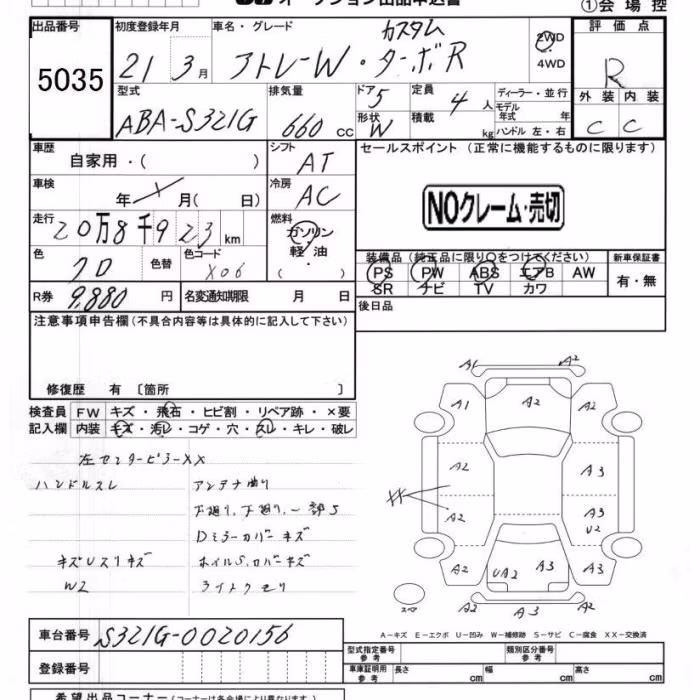 オークション出品申込書
①会場控
出品番号 初度登録年月 車名・グレード カスタム 2WD 評価点
5035 21 3月 アトレーW・ターボR 4WD R
型式 排気量 ドア 5 定員 4人 ディーラー・並行 外装 内装
ABA-S321G 660cc 形状 W 積載 kg モデル年式 年 C C
ハンドル 左・右
車歴 自家用・( ) シフト AT セールスポイント (正常に機能するものに限ります)
車検 年 月(日) 冷房 AC
NOクレーム・売切
走行 20万8千923km 燃料 ガソリン 軽油 ・ ( )
色 色替 色コード X06
装備品(純正品に限り○をつけてください) 新車保証書
PS PW ABS エアB AW 有・無
SR ナビ TV カワ
R券 9,880円 名変通知期限 月 日 後日品
注意事項申告欄(不具合内容等は具体的に記入して下さい)
修復歴 有〔箇所 〕
検査員 FW キズ・飛石・ヒビ割・リペア跡・×要
記入欄 内装 キズ・汚レ・コゲ・穴・スレ・キレ・破レ
左センターピラーXX
ハンドルスレ アンテナ曲り
下廻り、下廻り、一部S
Dミラーカバーキズ
キズUスリキズ ホイルS、カバーキズ
W2 ライトクモリ
A1 A2
A1 A2 A2
A2 A3
XX
A2 A3
U2
A2 UA2 A3 A3
スマ A2 A3 A2
A-キズ E-エクボ U-凹み W-補修跡 S-サビ C-腐食 XX-交換済
車台番号 S321G-0020156
型式指定番号 参考 類別区分番号 参考
登録番号 車庫証明用 参考 長さ cm 幅 cm 高さ cm
希望出品コーナー(コーナーは各会場により異なります)